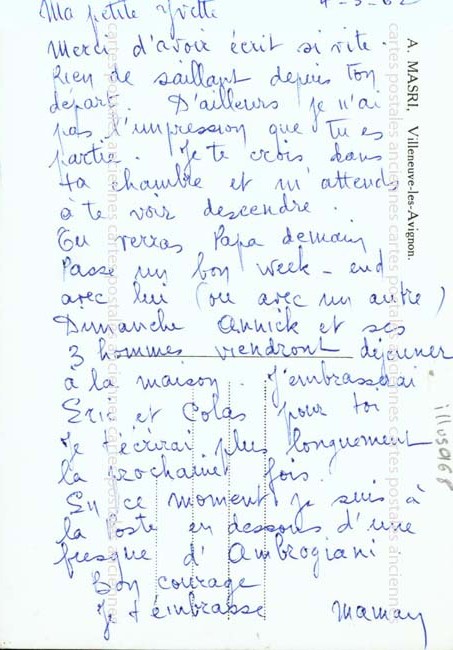 Ma petite Yvette
4-5-62
Merci d'avoir écrit si vite.
Rien de saillant depuis ton
départ. D'ailleurs je n'ai
pas l'impression que tu es
partie. Je te crois dans
ta chambre et m'attends
à te voir descendre.
Tu verras Papa demain
Passe un bon week-end
avec lui (ou avec un autre)
Dimanche Annick et ses
3 hommes viendront déjeuner
à la maison. J'embrasserai
Eric et Colas pour toi
Je t'écrirai plus longuement
la prochaine fois.
En ce moment je suis à
la Poste en dessous d'une
fresque d'Ambrogiani
Bon courage
Je t'embrasse Maman
A. MASRI. Villeneuve-les-Avignon.
cartes postales anciennes cartes postales anciennes cartes postales anciennes
cartes postales anciennes cartes postales anciennes cartes postales anciennes
illus968